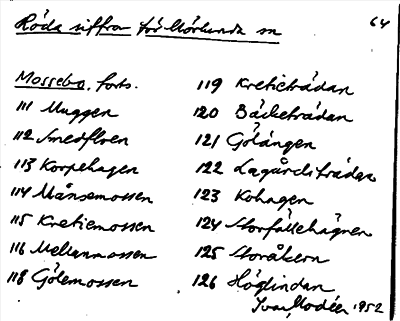 Röda siffror för Mörlunda sn
64
Mossebo, forts.
111 Muggen
112 Smedfloen
113 Korpehagen
114 Månsemossen
115 Kretiemossen
116 Mellanmossen
118 Gölemossen
119 Kreticträdan
120 Bäcketrädan
121 Gölängen
122 Lagårdsträdan
123 Kohagen
124 Storfällehägnen
125 Storåkern
126 Höglindan
Ivar Modéer 1952